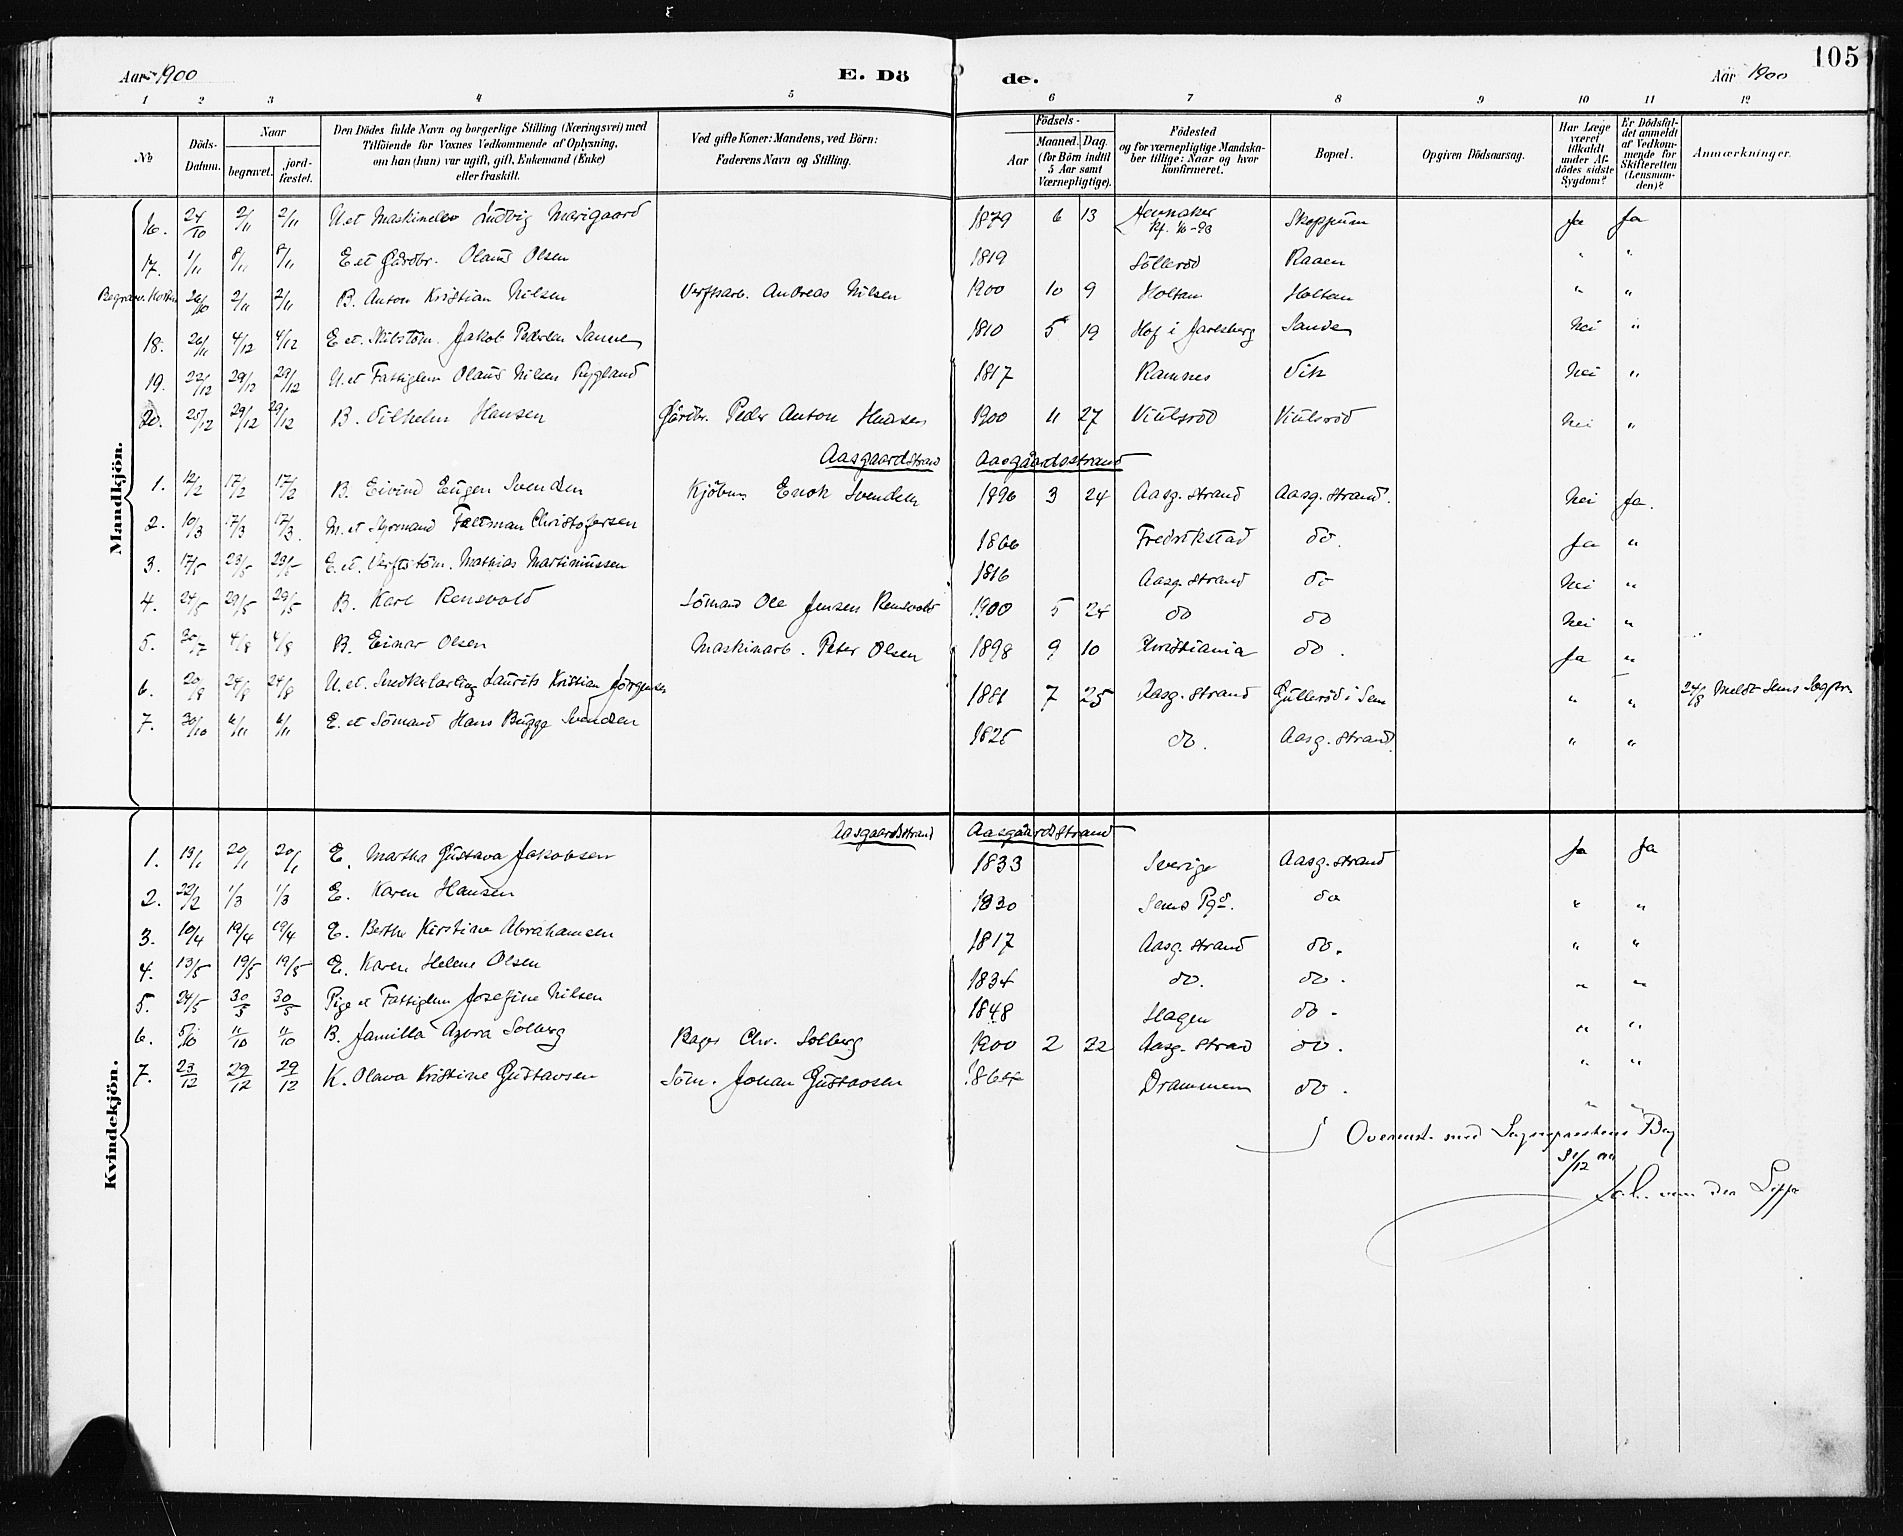 105
Aar 1900 E. Dö de. Aar 1900
1 2 3 4 5 6 7 8 9 10 11 12
No Döds-Datum. Naar begravet. jord-fæstet. Den Dödes fulde Navn og borgerlige Stilling (Næringsvei) med Tilföiende for Voxnes Vedkommende af Oplysning, om han (hun) var ugift, gift, Enkemand (Enke) eller fraskilt. Ved gifte Koner: Mandens, ved Börn: Faderens Navn og Stilling. Födsels- Aar Maaned. Dag. (for Börn indtil 5 Aar samt Værnepligtige). Födested og for værnepligtige Mandskaber tillige: Naar og hvor konfirmeret. Bopæl. Opgiven Dödsaarsag. Har Læge været tilkaldt under Afdödes sidste Sygdom? Er Dödsfaldet anmeldt af Vedkommende for Skifteretten (Lensmanden)? Anmærkninger.
Mandkjön.
16. 24/10 2/11 2/11 U. et Maskinelev Ludvig Marigaard 1879 6 13 Skoppum ja Ja
17. 1/11 8/11 8/11 E. et Gårdbr. Olaus Olsen 1819 Sölleröd Raaen " "
26/10 2/11 2/11 B. Anton Kristian Nilsen Verftsarb. Andreas Nilsen 1900 10 9 Holtan Holtan " "
18. 26/11 4/12 4/12 E. et. Jakob Pedersen Sanne 1810 5 19 Hof i Jarlsberg Sande Nei "
19. 22/12 29/12 29/12 U. et Fattiglem Olaus Nilsen Rygland 1817 Ramnes Vik Nei "
20. 25/12 29/12 29/12 B. Vilhelm Hansen Gårdbr. Peder Anton Hansen 1900 11 27 Viulsröd Viulsröd Nei "
Aasgaardstrand Aasgaardsstrand
1. 12/2 17/2 17/2 B. Eivind Eugen Svendsen Kjöbm. Enok Svendsen 1896 3 24 Aasg. strand Aasg. strand. Nei Ja.
2. 10/3 17/3 17/3. M. et Styrmand Feltman Christofersen 1866 Fredrikstad do. Ja "
3. 17/5 23/5 23/5 E. et. Verftstöm. Mathias Martinussen 1816 Aasg. strand do Nei "
4. 24/5 29/5 29/5 B. Karl Rensvold Sömand Ole Jensen Rensvold 1900 5 24 do do Nei "
5. 30/7 4/8 4/8 B. Einar Olsen Maskinarb. Peter Olsen 1898 9 10 Christiania do. Ja "
6. 20/8 24/8 24/8 U. et. Snedkerlærling Laurits Kristian Jörgensen 1881 7 25 Aasg. strand Gulleröd i Sem " " 24/8 Meldt Sems Sogpr.
7. 30/10 6/11 6/11 E. et Sömand Hans Bugge Svendsen 1825 do. Aasg. strand. " "
Kvindekjön.
Aasgaardsstrand Aasgaardsstrand
1. 13/1 20/1 20/1 E. Martha Gustava Jakobsen 1833 Sverige Aasg. strand Ja Ja
2. 22/2 1/3 1/3 E. Karen Hansen 1830 Sems Pgd. do " "
3. 10/4 19/4 19/4 E. Berthe Kirstine Abrahamsen 1817 Aasg. strand do. " "
4. 13/5 19/5 19/5 E. Karen Helene Olsen 1834 do. do. " "
5. 24/5 30/5 30/5 Pige et Fattiglem Josefine Nilsen 1848 Slagen do. " "
6. 5/10 11/10 11/10 B. Jamilla Agora Solberg Bager Chr. Solberg 1900 2 22 Aasg. strand do. " "
7. 23/12 29/12 29/12 K. Olava Kristine Gustavsen Söm. Johan Gustavsen 1864 Drammen do. " "
Overenst. med Sognepræstens Bog
31/12 00
Joh. von der Lippe